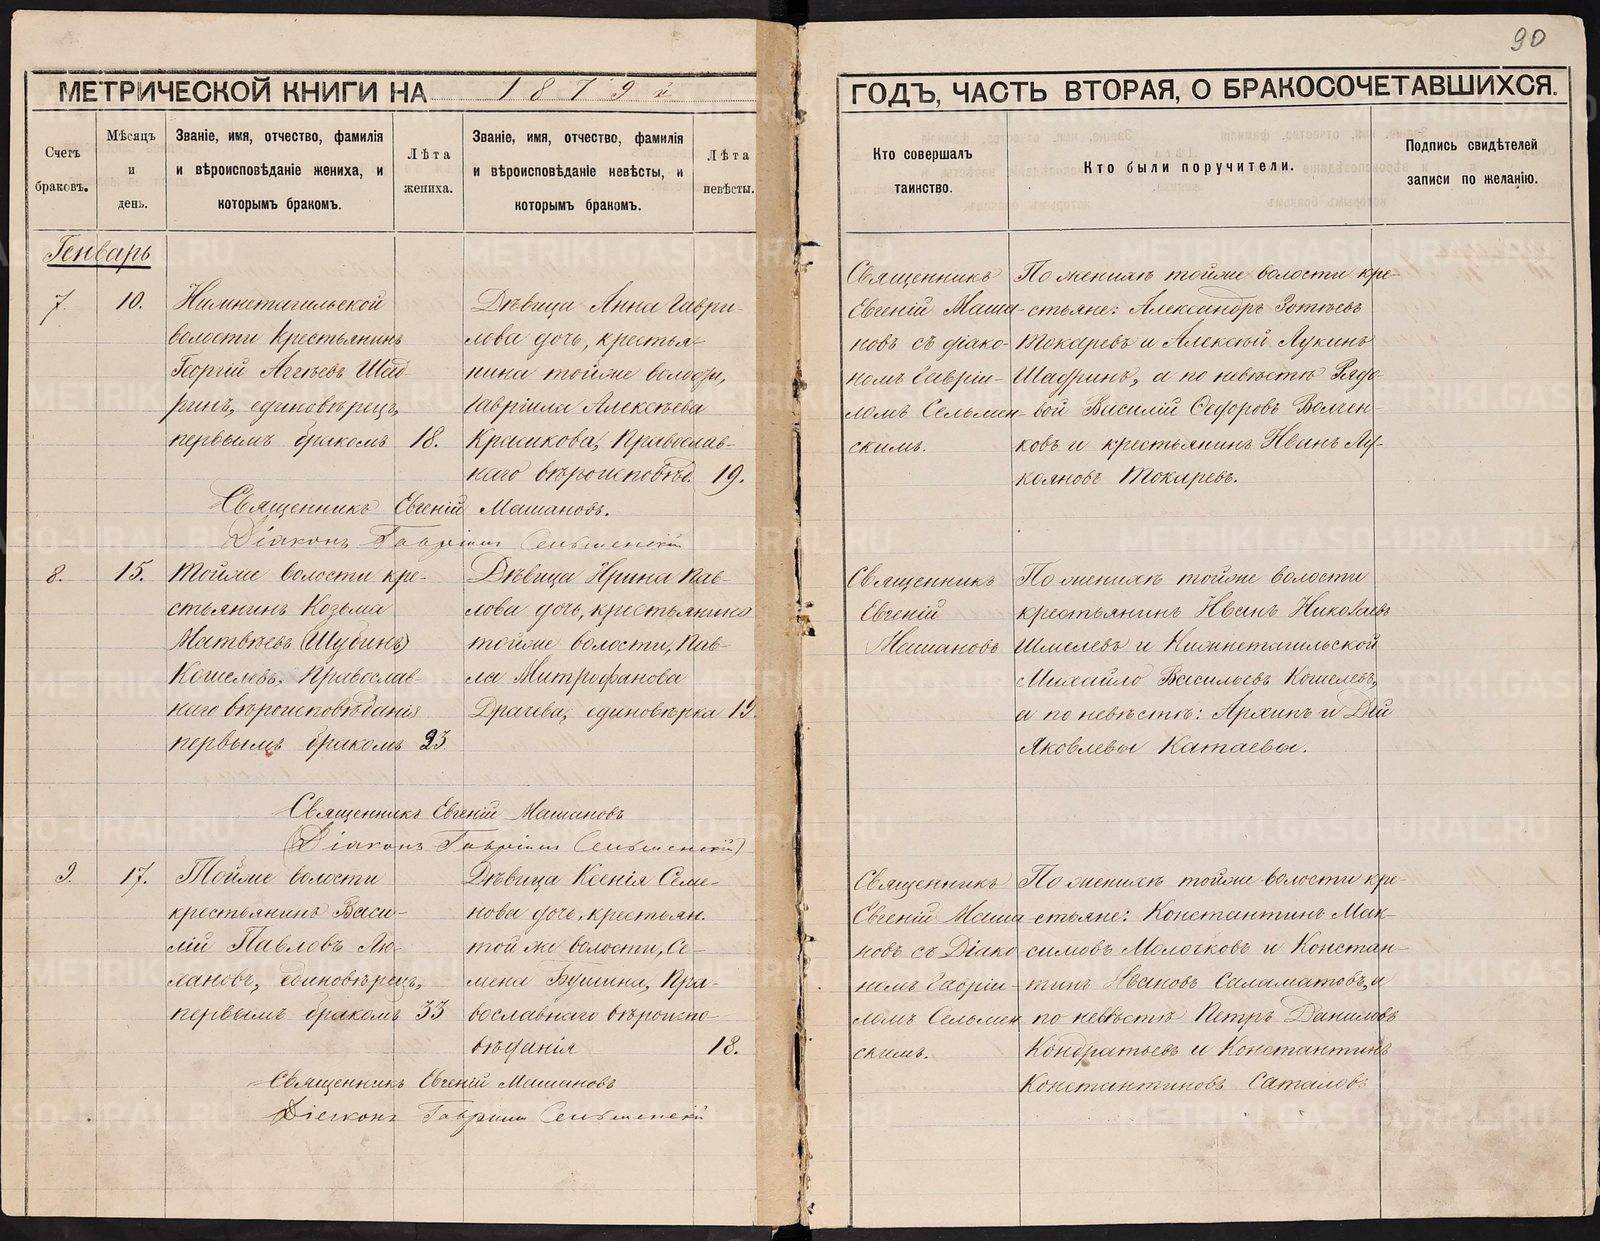 90
МЕТРИЧЕСКОЙ КНИГИ НА 1879й
ГОДЪ, ЧАСТЬ ВТОРАЯ, О БРАКОСОЧЕТАВШИХСЯ.
Счетъ браковъ.
Мѣсяцъ и день.
Званіе, имя, отчество, фамилія
и вѣроисповѣданіе жениха, и
которымъ бракомъ.
Лѣта жениха.
Званіе, имя, отчество, фамилія
и вѣроисповѣданіе невѣсты, и
которымъ бракомъ.
Лѣта невѣсты.
Кто совершалъ
таинство.
Кто были поручители.
Подпись свидѣтелей
записи по желанію.
Генварь
7 10.
Нижнетагильской
волости крестьянинъ
Георгій Аггѣевъ Шад-
ринъ, единовѣрецъ,
первымъ бракомъ 18.
Дѣвица Анна Гаври-
лова дочь, крестья-
нина тойже волости,
Гавріила Алексѣева
Красикова, Православ-
наго вѣроисповѣд. 19.
Священникъ
Евгеній Маша-
новъ съ діако-
номъ Гавріи-
ломъ Сельмен-
скимъ.
По женихѣ тойже волости кре-
стьяне: Александръ Зотѣевъ
Токаревъ и Алексѣй Лукинъ
Шадринъ, а по невѣстѣ Рядо-
вой Василій Ѳедоровъ Волчен-
ковъ и крестьянинъ Иванъ Лу-
кояновъ Токаревъ.
Священникъ Евгеній Машановъ.
Діаконъ Гавріилъ Сельменскій
8. 15.
Тойже волости кре-
стьянинъ Козьма
Матвѣевъ (Шубинъ)
Кошелевъ, Православ-
наго вѣроисповѣданія
первымъ бракомъ 23.
Дѣвица Ирина Пав-
лова дочь, крестьянина
тойже волости, Пав-
ла Митрофанова
Драчева, единовѣрка 19.
Священникъ
Евгеній
Машановъ
По женихѣ тойже волости
крестьянинъ Иванъ Николаевъ
Шмелевъ и Нижнетагильской
Михайло Васильевъ Кошелевъ,
а по невѣстѣ: Архипъ и Дій
Яковлевы Катаевы.
Священникъ Евгеній Машановъ
(Діаконъ Гавріилъ Сельменскій)
9. 17.
Тойже волости
крестьянинъ Васи-
лій Павловъ Лю-
хановъ, единовѣрецъ,
первымъ бракомъ 33
Дѣвица Ксенія Семе-
нова дочь, крестьян.
той же волости, Се-
мена Бушина, Пра-
вославнаго вѣроиспо-
вѣданія 18.
Священникъ
Евгеній Маша
новъ съ Діако
номъ Гавріи-
ломъ Сельмен
скимъ.
По женихѣ тойже волости кре-
стьяне: Константинъ Мак-
симовъ Молочковъ и Констан-
тинъ Ивановъ Саламатовъ, а
по невѣстѣ Петръ Даниловъ
Кондратьевъ и Константинъ
Константиновъ Саталовъ
Священникъ Евгеній Машановъ
Діаконъ Гавріилъ Сельменскій
METRIKI.GASO-URAL.RU